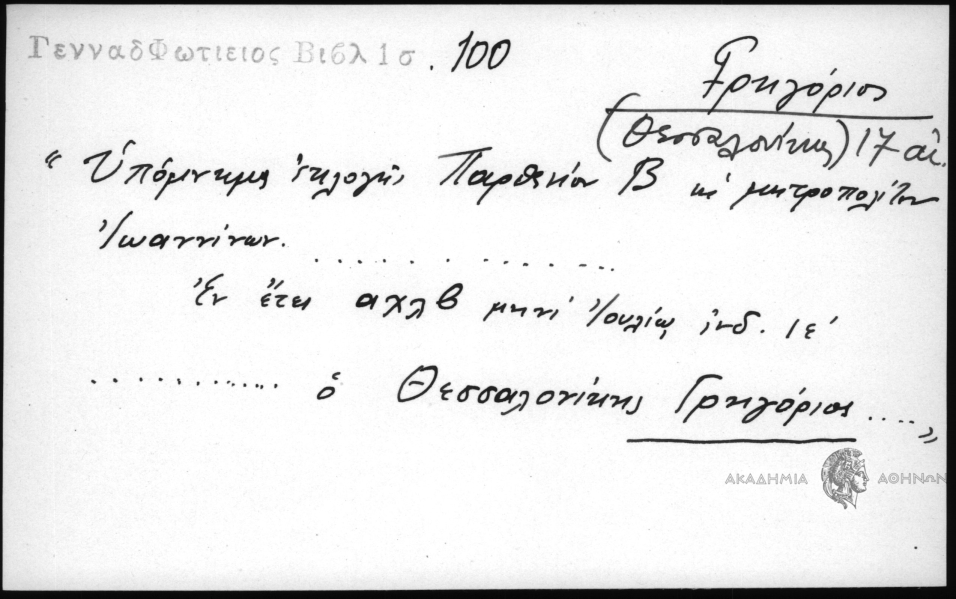 ΓενναδΦωτιειος Βιβλ 1σ . 100
Γρηγόριος
(Θεσσαλονίκης) 17 αἰ.
"Ὑπόμνημα ἐκλογῆς Παρθενίου Β κ μητροπολίτου
Ἰωαννίνων. . . . . . . . . . . .
Ἐν ἔτει αχλβ μηνί Ἰουλίῳ ἰνδ. ιε'
. . . . . . . . . . . . ὁ Θεσσαλονίκης Γρηγόριος ....."
ΑΚΑΔΗΜΙΑ ΑΘΗΝΩΝ